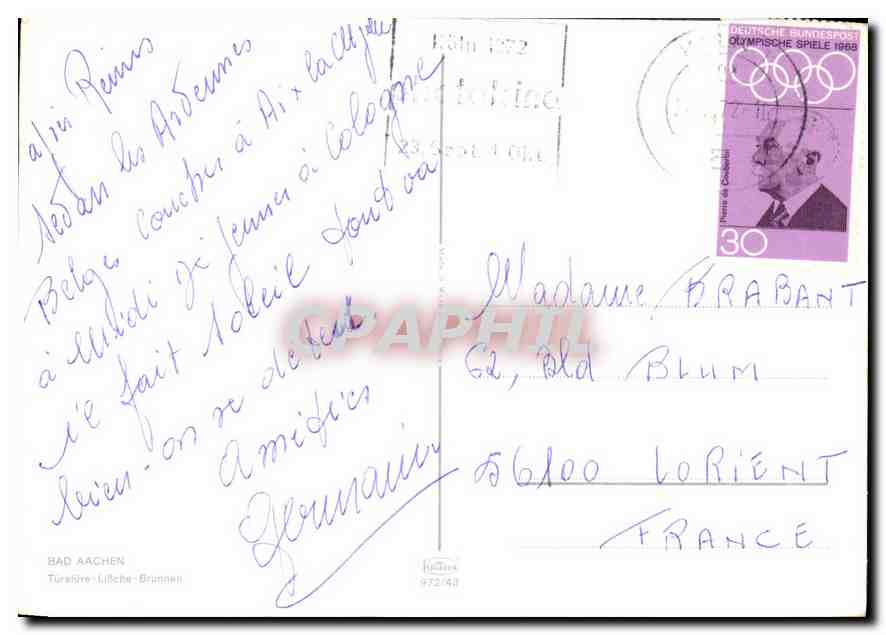 après Reims
Sedan les Ardennes
Belges Coucher à Aix la
à midi déjeuner à Cologne
il fait soleil tout va
bien - on se détend
Amitiés
Germaine
BAD AACHEN
Türelüre-Lißche-Brunnen
KRÜGER
972/43
Köln 1972
photokina
DEUTSCHE BUNDESPOST
OLYMPISCHE SPIELE 1968
Pierre de Coubertin
30
Madame BRABANT
62, Bld BLUM
56100 LORIENT
FRANCE
CPAPHIL